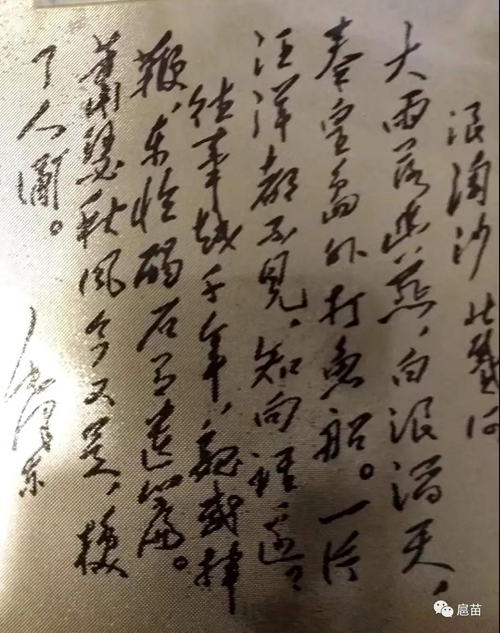 浪淘沙 北戴河
大雨落幽燕,白浪滔天,
秦皇島外打魚船。一片
汪洋都不見,知向誰邊?
往事越千年,魏武揮
鞭,东临碣石有遗篇。
萧瑟秋風今又是,换
了人间。
毛泽东
扈苗